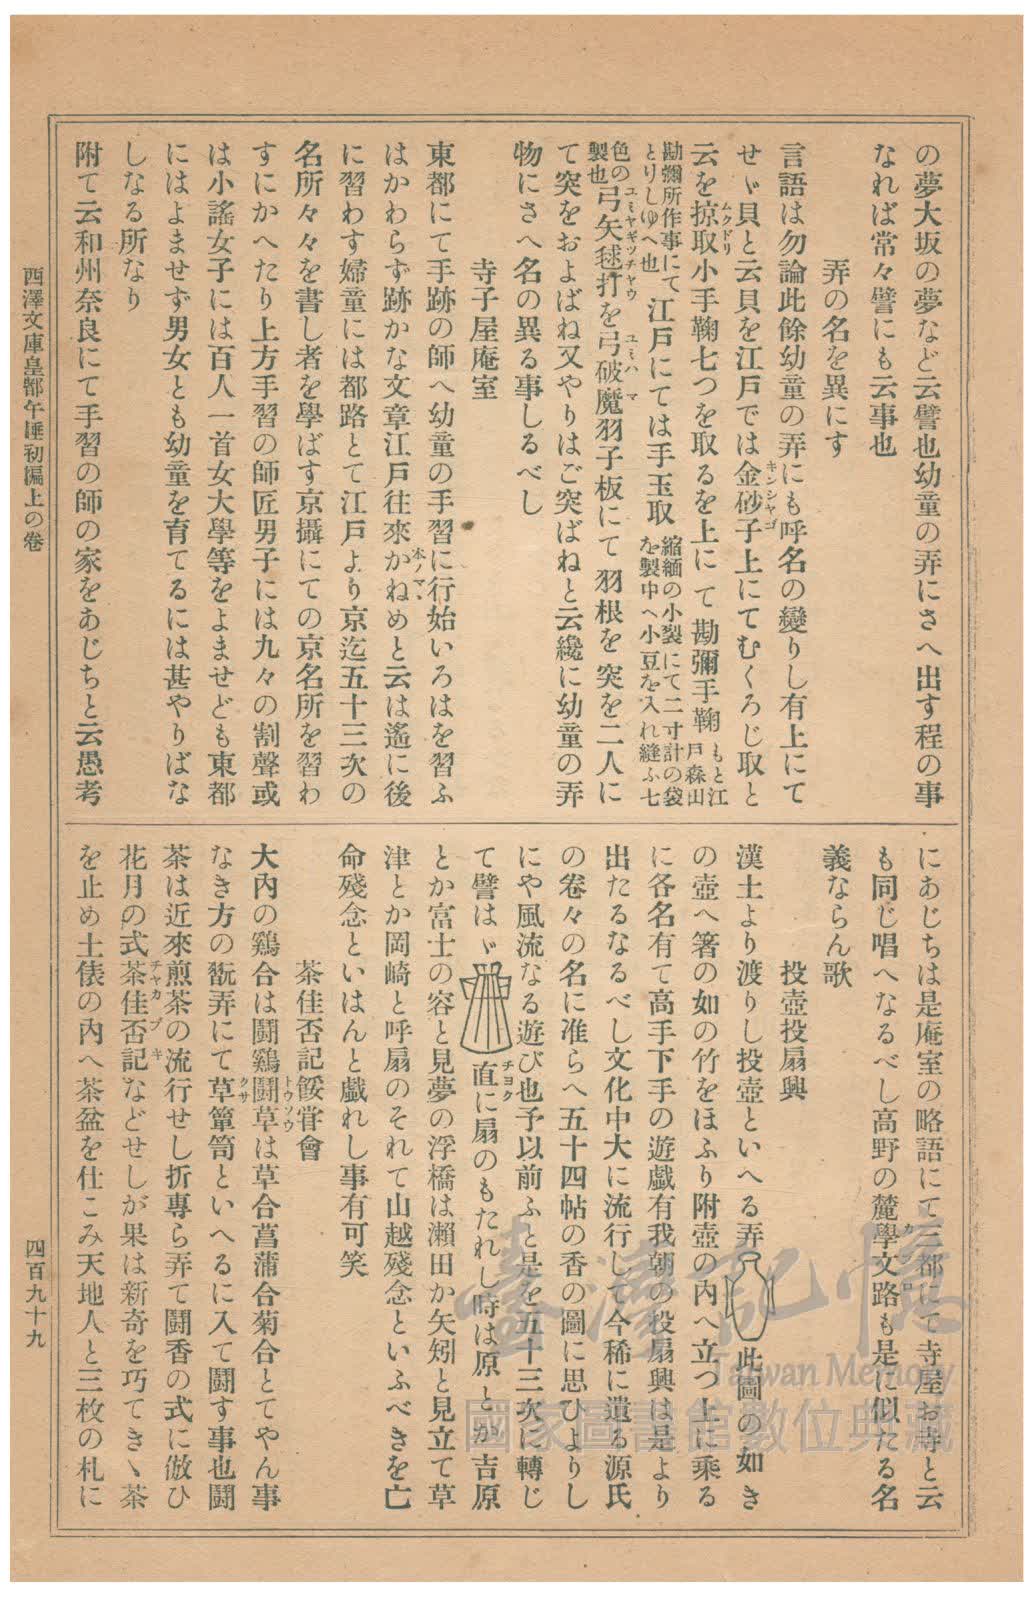 の夢大坂の夢など云譬也幼童の弄にさへ出す程の事
なれば常々譬にも云事也
弄の名を異にす
言語は勿論此餘幼童の弄にも呼名の變りし有上にて
せゞ貝と云貝を江戸では金砂子上にてむくろじ取と
キンシヤゴ
云を掠取小手鞠七つを取るを上にて勘彌手鞠もと江戸森山
ムクドリ
勘彌所作事にてとりしゆへ也江戸にては手玉取縮緬の小裂にて二寸計の袋を製中へ小豆を入れ縫ふ七
色の製也弓矢毬打を弓破魔羽子板にて羽根を突を二人に
ユミヤギツチヤウ
ユミハマ
て突をおよばね又やりはご突ばねと云纔に幼童の弄
物にさへ名の異る事しるべし
寺子屋庵室
東都にて手跡の師へ幼童の手習に行始いろはを習ふ
はかわらず跡かな文章江戸往來かねめと云は遙に後
本ノマヽ
に習わす婦童には都路とて江戸より京迄五十三次の
名所々々を書し者を學ばす京攝にての京名所を習わ
すにかへたり上方手習の師匠男子には九々の割聲或
は小謠女子には百人一首女大學等をよませども東都
にはよませず男女とも幼童を育てるには甚やりばな
しなる所なり
附て云和州奈良にて手習の師の家をあじちと云愚考
にあじちは是庵室の略語にて三都にて寺屋お寺と云
も同じ唱へなるべし高野の麓學文路も是に似たる名
カブロ
義ならん歌
投壺投扇興
漢土より渡りし投壺といへる弄此圖の如き
の壺へ箸の如の竹をほふり附壺の内へ立つ上に乘る
に各名有て高手下手の遊戯有我朝の投扇興は是より
出たるなるべし文化中大に流行して今稀に遺る源氏
の卷々の名に准らへ五十四帖の香の圖に思ひよりし
にや風流なる遊び也予以前ふと是を五十三次に轉じ
て譬はゞ直に扇のもたれし時は原とか吉原
チヨク
とか富士の容と見夢の浮橋は瀬田か矢矧と見立て草
津とか岡崎と呼扇のそれて山越殘念といふべきを亡
命殘念といはんと戯れし事有可笑
茶佳否記餒甞會
大内の鷄合は鬪鷄鬪草は草合菖蒲合菊合とてやん事
トウソウ
なき方の翫弄にて草簞笥といへるに入て鬪す事也鬪
クサ
茶は近來煎茶の流行せし折專ら弄て鬪香の式に倣ひ
花月の式茶佳否記などせしが果は新奇を巧てきゝ茶
チヤカブキ
を止め土俵の内へ茶盆を仕こみ天地人と三枚の札に
西澤文庫皇都午睡初編上の卷
四百九十九
臺灣記憶
Taiwan Memory
國家圖書館數位典藏